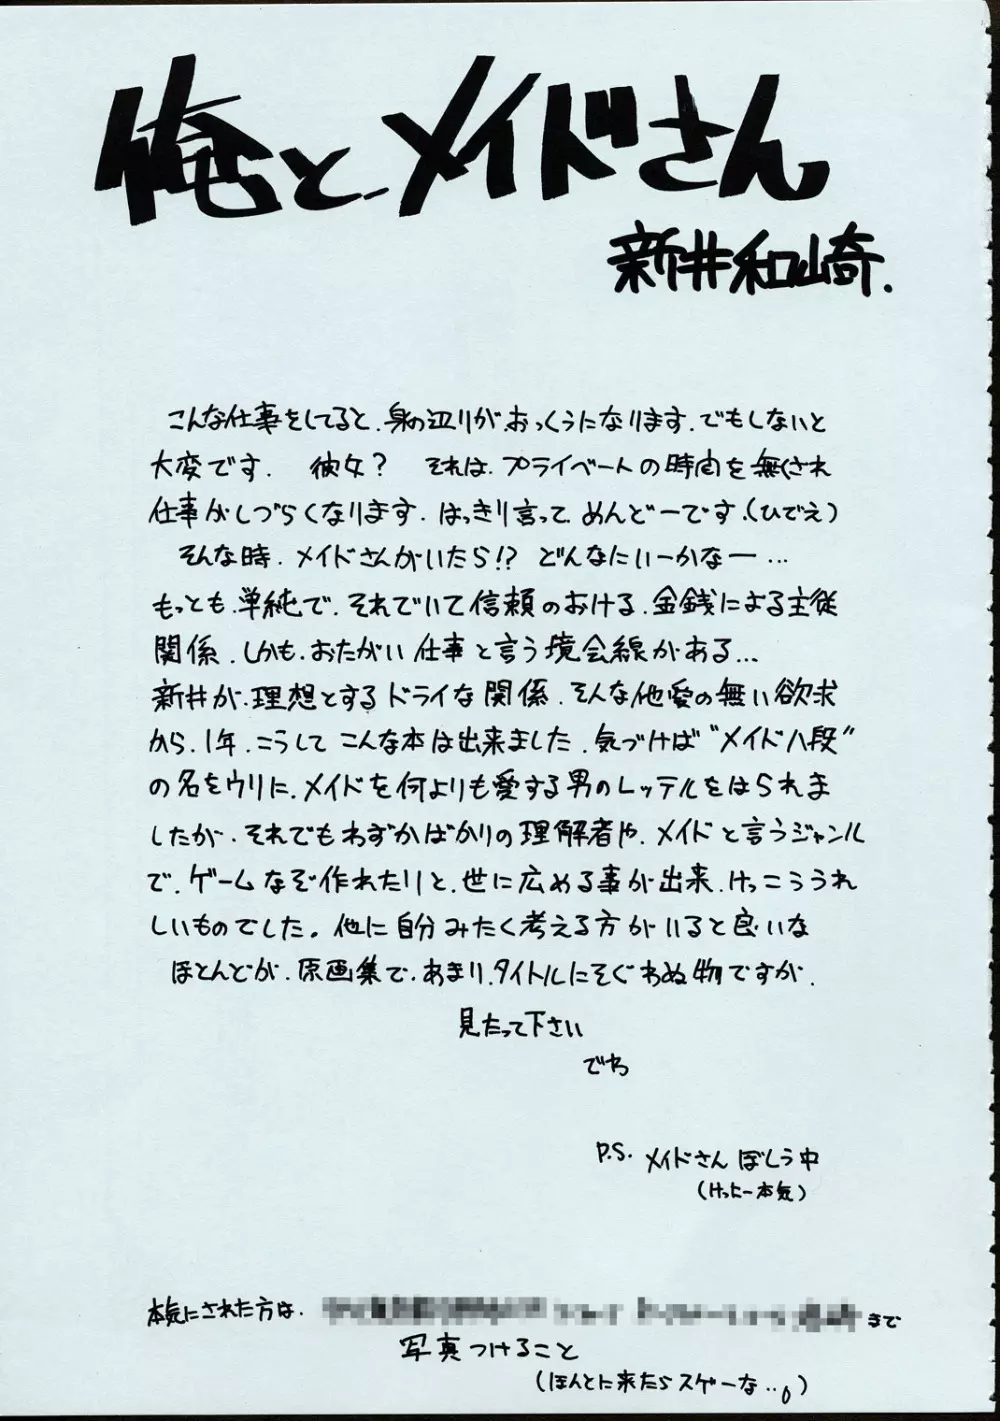 俺とメイドさん
新井和崎.
こんな仕事をしてると.身の辺りが.おっくうになります.でもしないと
大変です. 彼女? それは.プライベートの時間を無くされ
仕事がしづらくなります.はっきり言って.めんどーです.(ひでえ)
そんな時.メイドさんがいたら!? どんなにいーかなー...
もっとも.単純で.それでいて信頼のおける.金銭による主従
関係.しかも.おたがい仕事と言う境会線がある...
新井が.理想とするドライな関係.そんな他愛の無い欲求
から.1年.こうしてこんな本は出来ました.気づけば"メイド八段"
の名をウリに.メイドを何よりも愛する男のレッテルをはられま
したが.それでもわずかばかりの理解者や.メイドと言うジャンル
で.ゲームなぞ作れたりと.世に広める事が出来.けっこううれ
しいものでした。他に自分みたく考える方がいると良いな
ほとんどが.原画集で.あまり.タイトルにそぐわぬ物ですが.
見たって下さい
でわ
P.S. メイドさんぼしう中
(けっこー本気)
本気にされた方は. まで
写真つけること
(ほんとに来たらスゲーな...。)